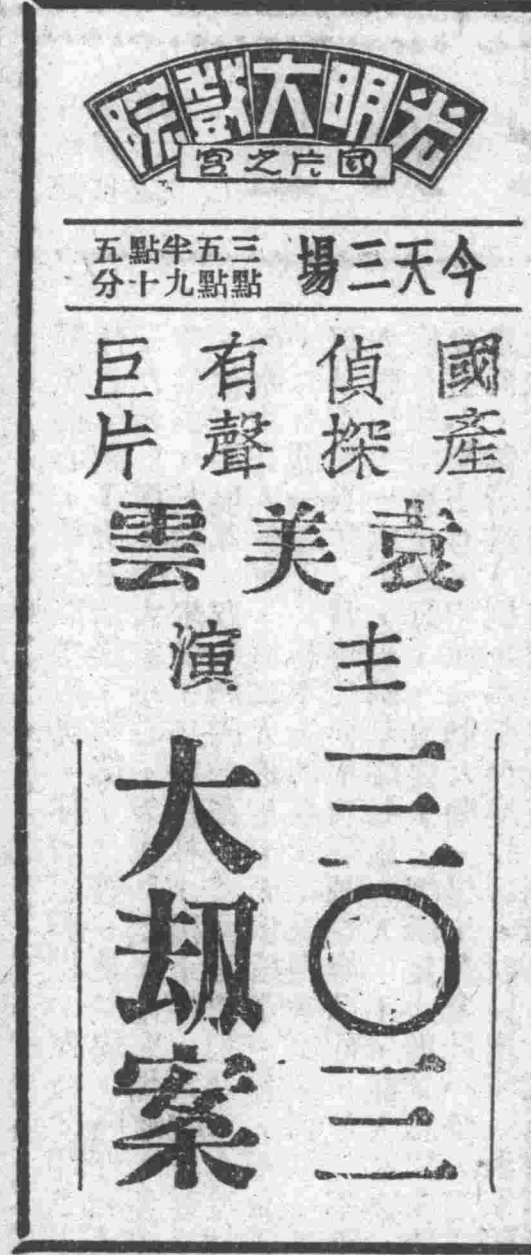 光明大戲院
國片之宮
今天三場
三點五點半九點十五分
國產
偵探
有聲
巨片
袁美雲
主演
三〇三
大刼案